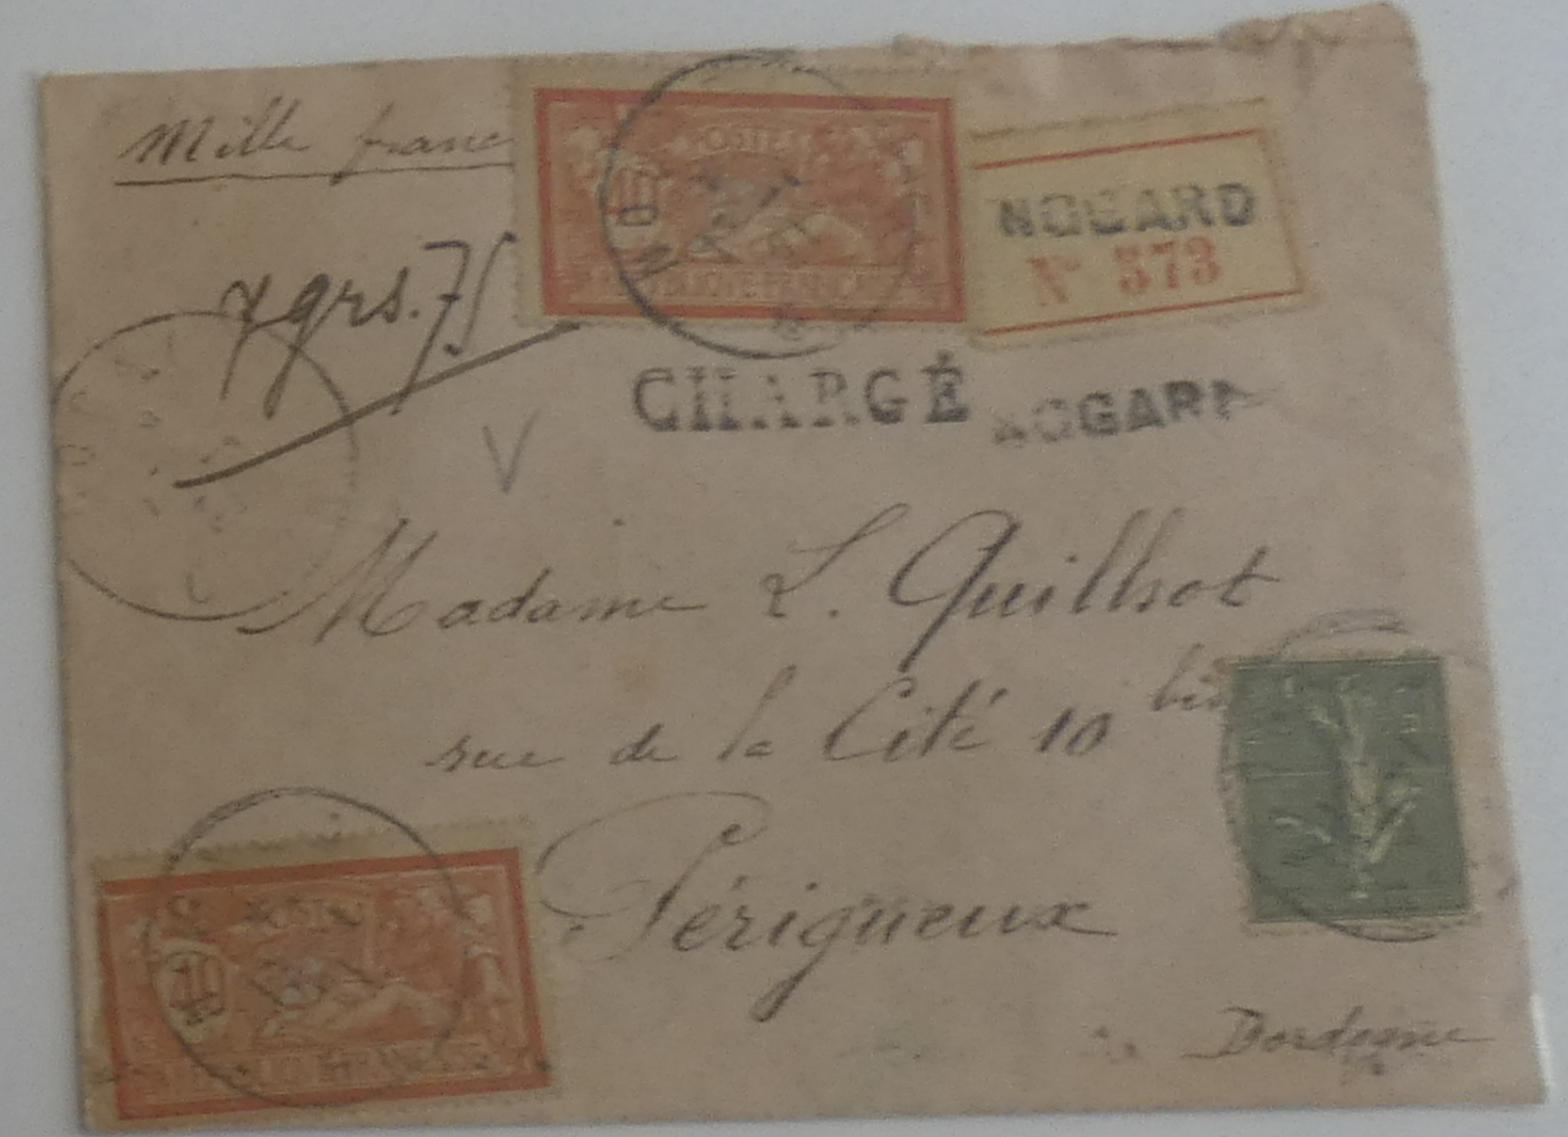 Mille francs
7 grs. 75
NOGARO
N° 373
CHARGÉ
NOGARO
V
Madame L. Quillsot
rue de la Cité 10 bis
Périgueux
Dordogne